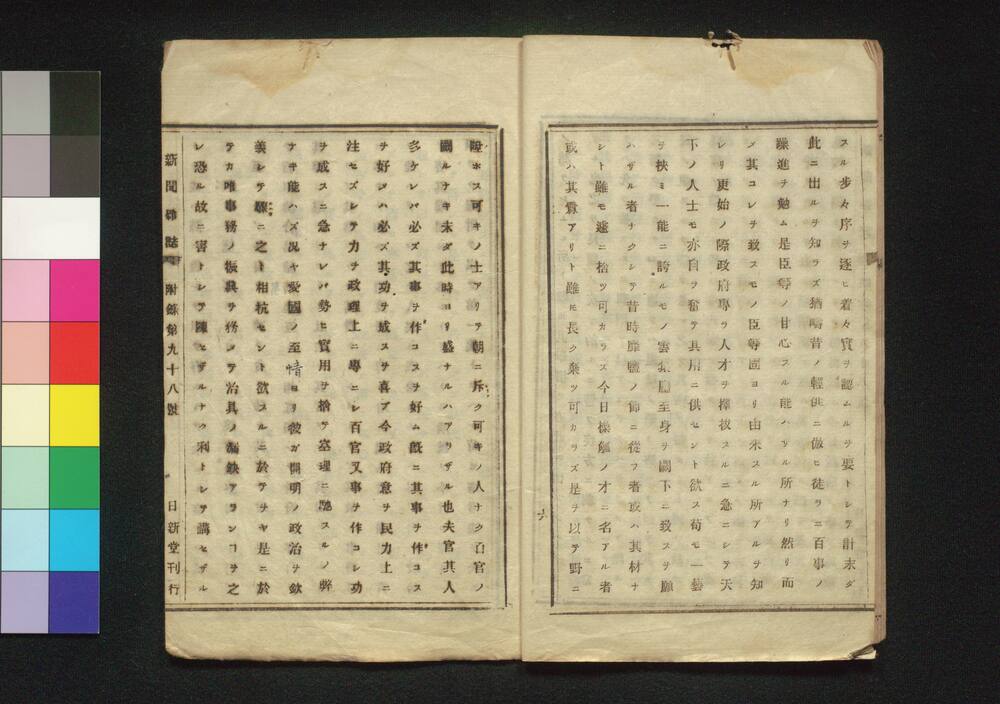 スル歩々序ヲ逐ヒ着々實ヲ認ムルヲ要トシテ計未ダ
此ニ出ルヲ知ラズ猶疇昔ノ輕佻ニ倣ヒ徒ラニ百事ノ
躁進ヲ勉ム是臣等ノ甘心スル能ハザル所ナリ然リ而
メ其コレヲ致スモノ臣等固ヨリ由来スル所アルヲ知
レリ更始ノ際政府専ラ人才ヲ擇抜スルニ急ニシテ天
下ノ人士モ亦自ヲ奮テ其用ニ供セント欲ス苟モ一藝
ヲ挾ミ一能ニ誇ルモノ雲集麕至身ヲ闕下ニ致スヲ願
ハザル者ナクシテ昔時ノ師ニ從フ者或ハ其材ナ
シト雖モ遽ニ捨ツ可カラズ今日操觚ノオニ名アル者
或ハ其實アリト雖モ長ク棄ツ可カラズ是ヲ以テ野ニ
陞ホス可キノ士アリテ朝ニ斥ク可キノ人ナク百官ノ
ルナキ未ダ此時ヨリ盛ナルハアリザル也夫官其人
多ケレバ必ズ其事ヲ作コスヲ好ム既ニ其事ヲ作コス
ヲ好メハ必ズ其功ヲ成スヲ喜ブ今政府意ヲ民力上ニ
注セズシテ力ヲ政理上ニ專ニシ百官又事ヲ作コシ功
ヲ成スニ急ナレバ勢ヒ實用ヲ捨テ空理ニ馳スルノ弊
ナキ能ハズ況ヤ愛國ノ至情ヨリ彼ガ開明ノ政治ヲ欽
羨シテ驟ニ之ト相抗セント欲スルニ於テヲヤ是ニ於
テカ唯事務ノ振興ヲ務メテ治具ノ漏缺アランコヲ之
レ恐ル故ニ害トシテ陳セザルナク利トシテ講セザル
新聞雜誌 附録第九十八號 日新堂刊行
六